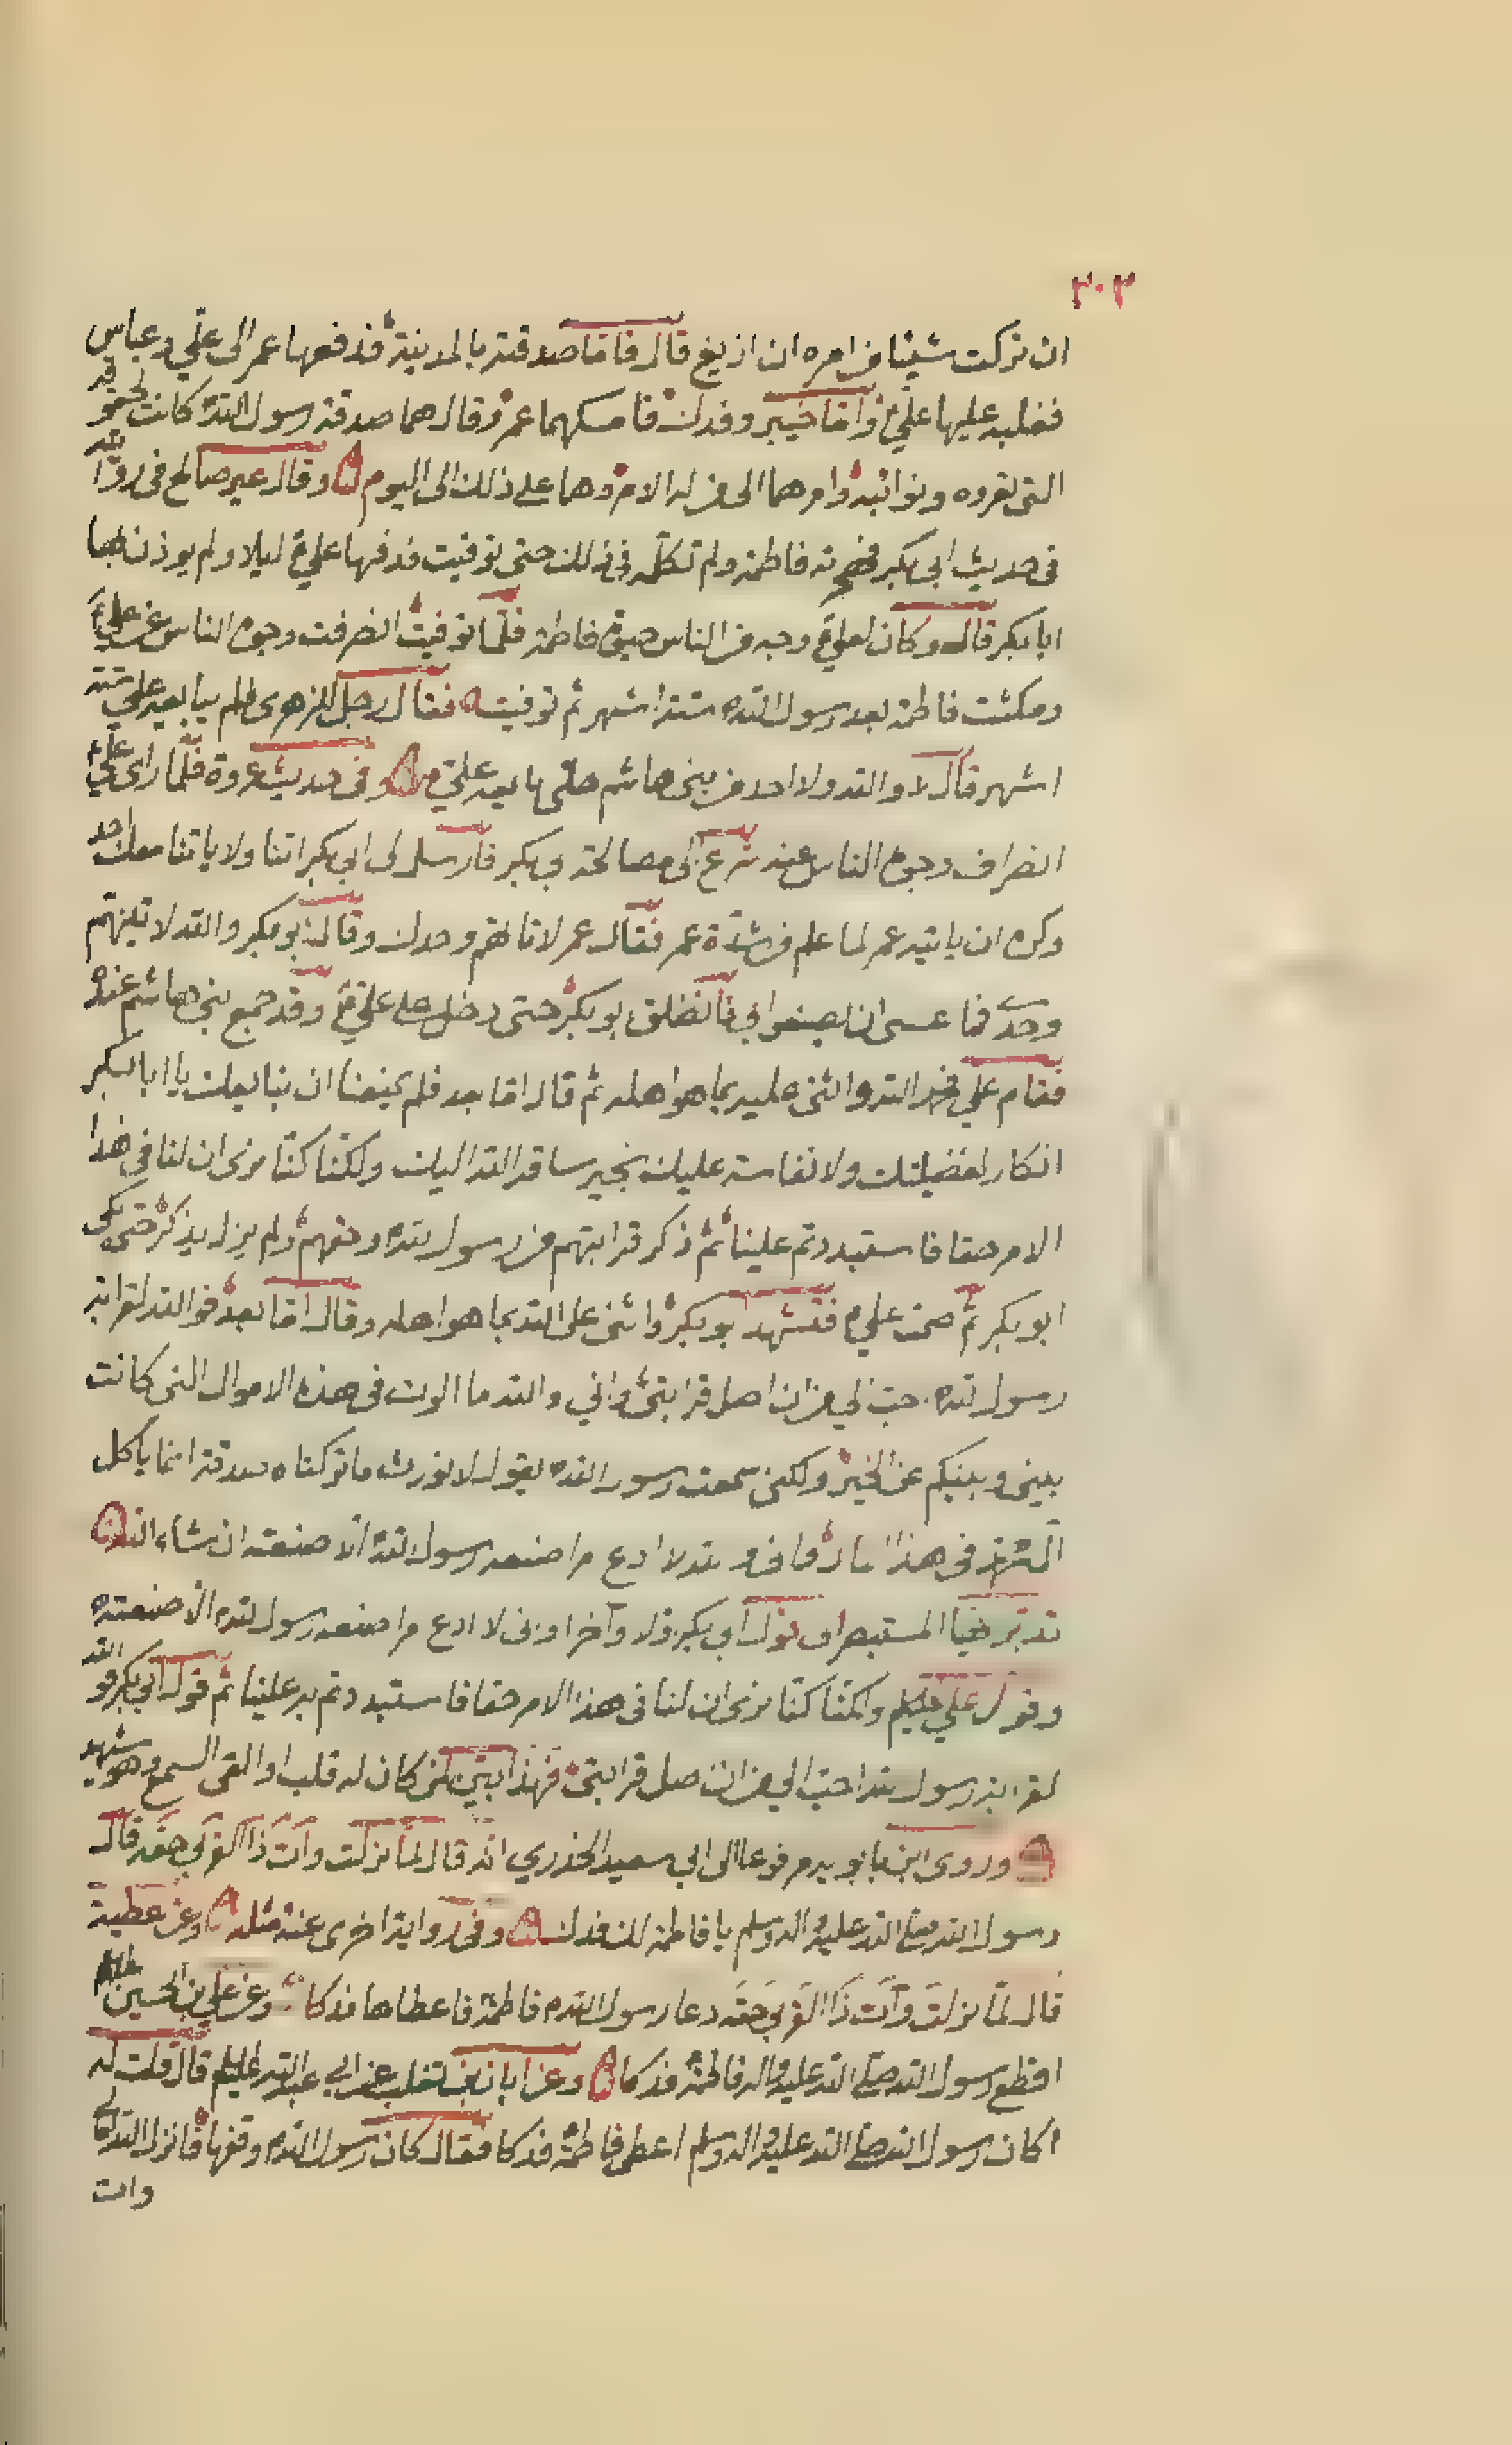 ٣٠٣
ان تركت شيئا من امره ان ازيغ قال فاما صدقته بالمدينة فدفعها عمر الى علي وعباس
فغلبه عليها علي واما خيبر وفدك فامسكهما عمر وقال هما صدقة رسول الله كانت لحقوقه
التي تعروه ونوائبه وامرهما الى من له الامر وهما على ذلك الى اليوم وقال غير صالح في روايته
في حديث ابي بكر فهجرته فاطمة ولم تكلمه في ذلك حتى توفيت فدفنها علي ع ليلا ولم يوذن بها
ابا بكر قال وكان لعلي ع وجه من الناس حيوة فاطمة فلما توفيت انصرفت وجوه الناس عن علي ع
ومكثت فاطمة بعد رسول الله ستة اشهر ثم توفيت فقال رجل للزهري فلم يبايعه علي ستة
اشهر قال لا والله ولا احد من بني هاشم حتى بايعه علي ع وفي حديث عروة فلما راى علي ع
انصراف وجوه الناس عنه ضرع الى مصالحة ابي بكر فارسل الى ابي بكر اتنا ولا ياتنا معك احد
وكره ان ياتيه عمر لما علم من شدة عمر فقال عمر لا تاتهم وحدك وقال ابو بكر والله لاتينهم
وحدي فما عسى ان يصنعوا بي فانطلق ابو بكر حتى دخل على علي ع وقد جمع بني هاشم عنده
فقام علي فحمد الله واثنى عليه بما هو اهله ثم قال اما بعد فلم يمنعنا ان نبايعك يا ابا بكر
انكار لفضيلتك ولا نفاسة عليك بخير ساقه الله اليك ولكنا كنا نرى ان لنا في هذا
الامر حقا فاستبددتم علينا ثم ذكر قرابتهم من رسول الله وحقهم ولم يزل يذكر حتى بكى
ابو بكر ثم صمت علي ع فتشهد ابو بكر واثنى على الله بما هو اهله وقال اما بعد فو الله لقرابة
رسول الله احب الي من ان اصل قرابتي واني والله ما الوت في هذه الاموال التي كانت
بيني وبينكم عن الخير ولكني سمعت رسول الله يقول لا نورث ما تركناه صدقة انما ياكل
ال محمد في هذا المال واني والله لا ادع امرا صنعه رسول الله الا صنعته ان شاء الله
تدبر ايها المستبصر في قول ابي بكر اولا وآخرا واني لا ادع امرا صنعه رسول الله الا صنعته
وقول علي عليكم ولكنا كنا نرى ان لنا في هذا الامر حقا فاستبددتم به علينا ثم قول ابي بكر فو الله
لقرابة رسول الله احب الي من ان اصل قرابتي فهذا بين لمن كان له قلب او القى السمع وهو شهيد
وروى ابن بابويه مرفوعا الى ابي سعيد الخدري انه قال لما نزلت وآت ذا القربى حقه قال
رسول الله صلى الله عليه واله وسلم يا فاطمة لك فدك وفي رواية اخرى عنه مثله وعن عطية
قال لما نزلت وآت ذا القربى حقه دعا رسول الله فاطمة فاعطاها فدكا وعن علي بن الحسين عليهم
اقطع رسول الله صلى الله عليه واله فاطمة فدكا وعن ابان بن تغلب عن ابي عبد الله عليهم قال قلت له
اكان رسول الله صلى الله عليه واله وسلم اعطى فاطمة فدكا فقال كان رسول الله وقفها فانزل الله تعالى
وات